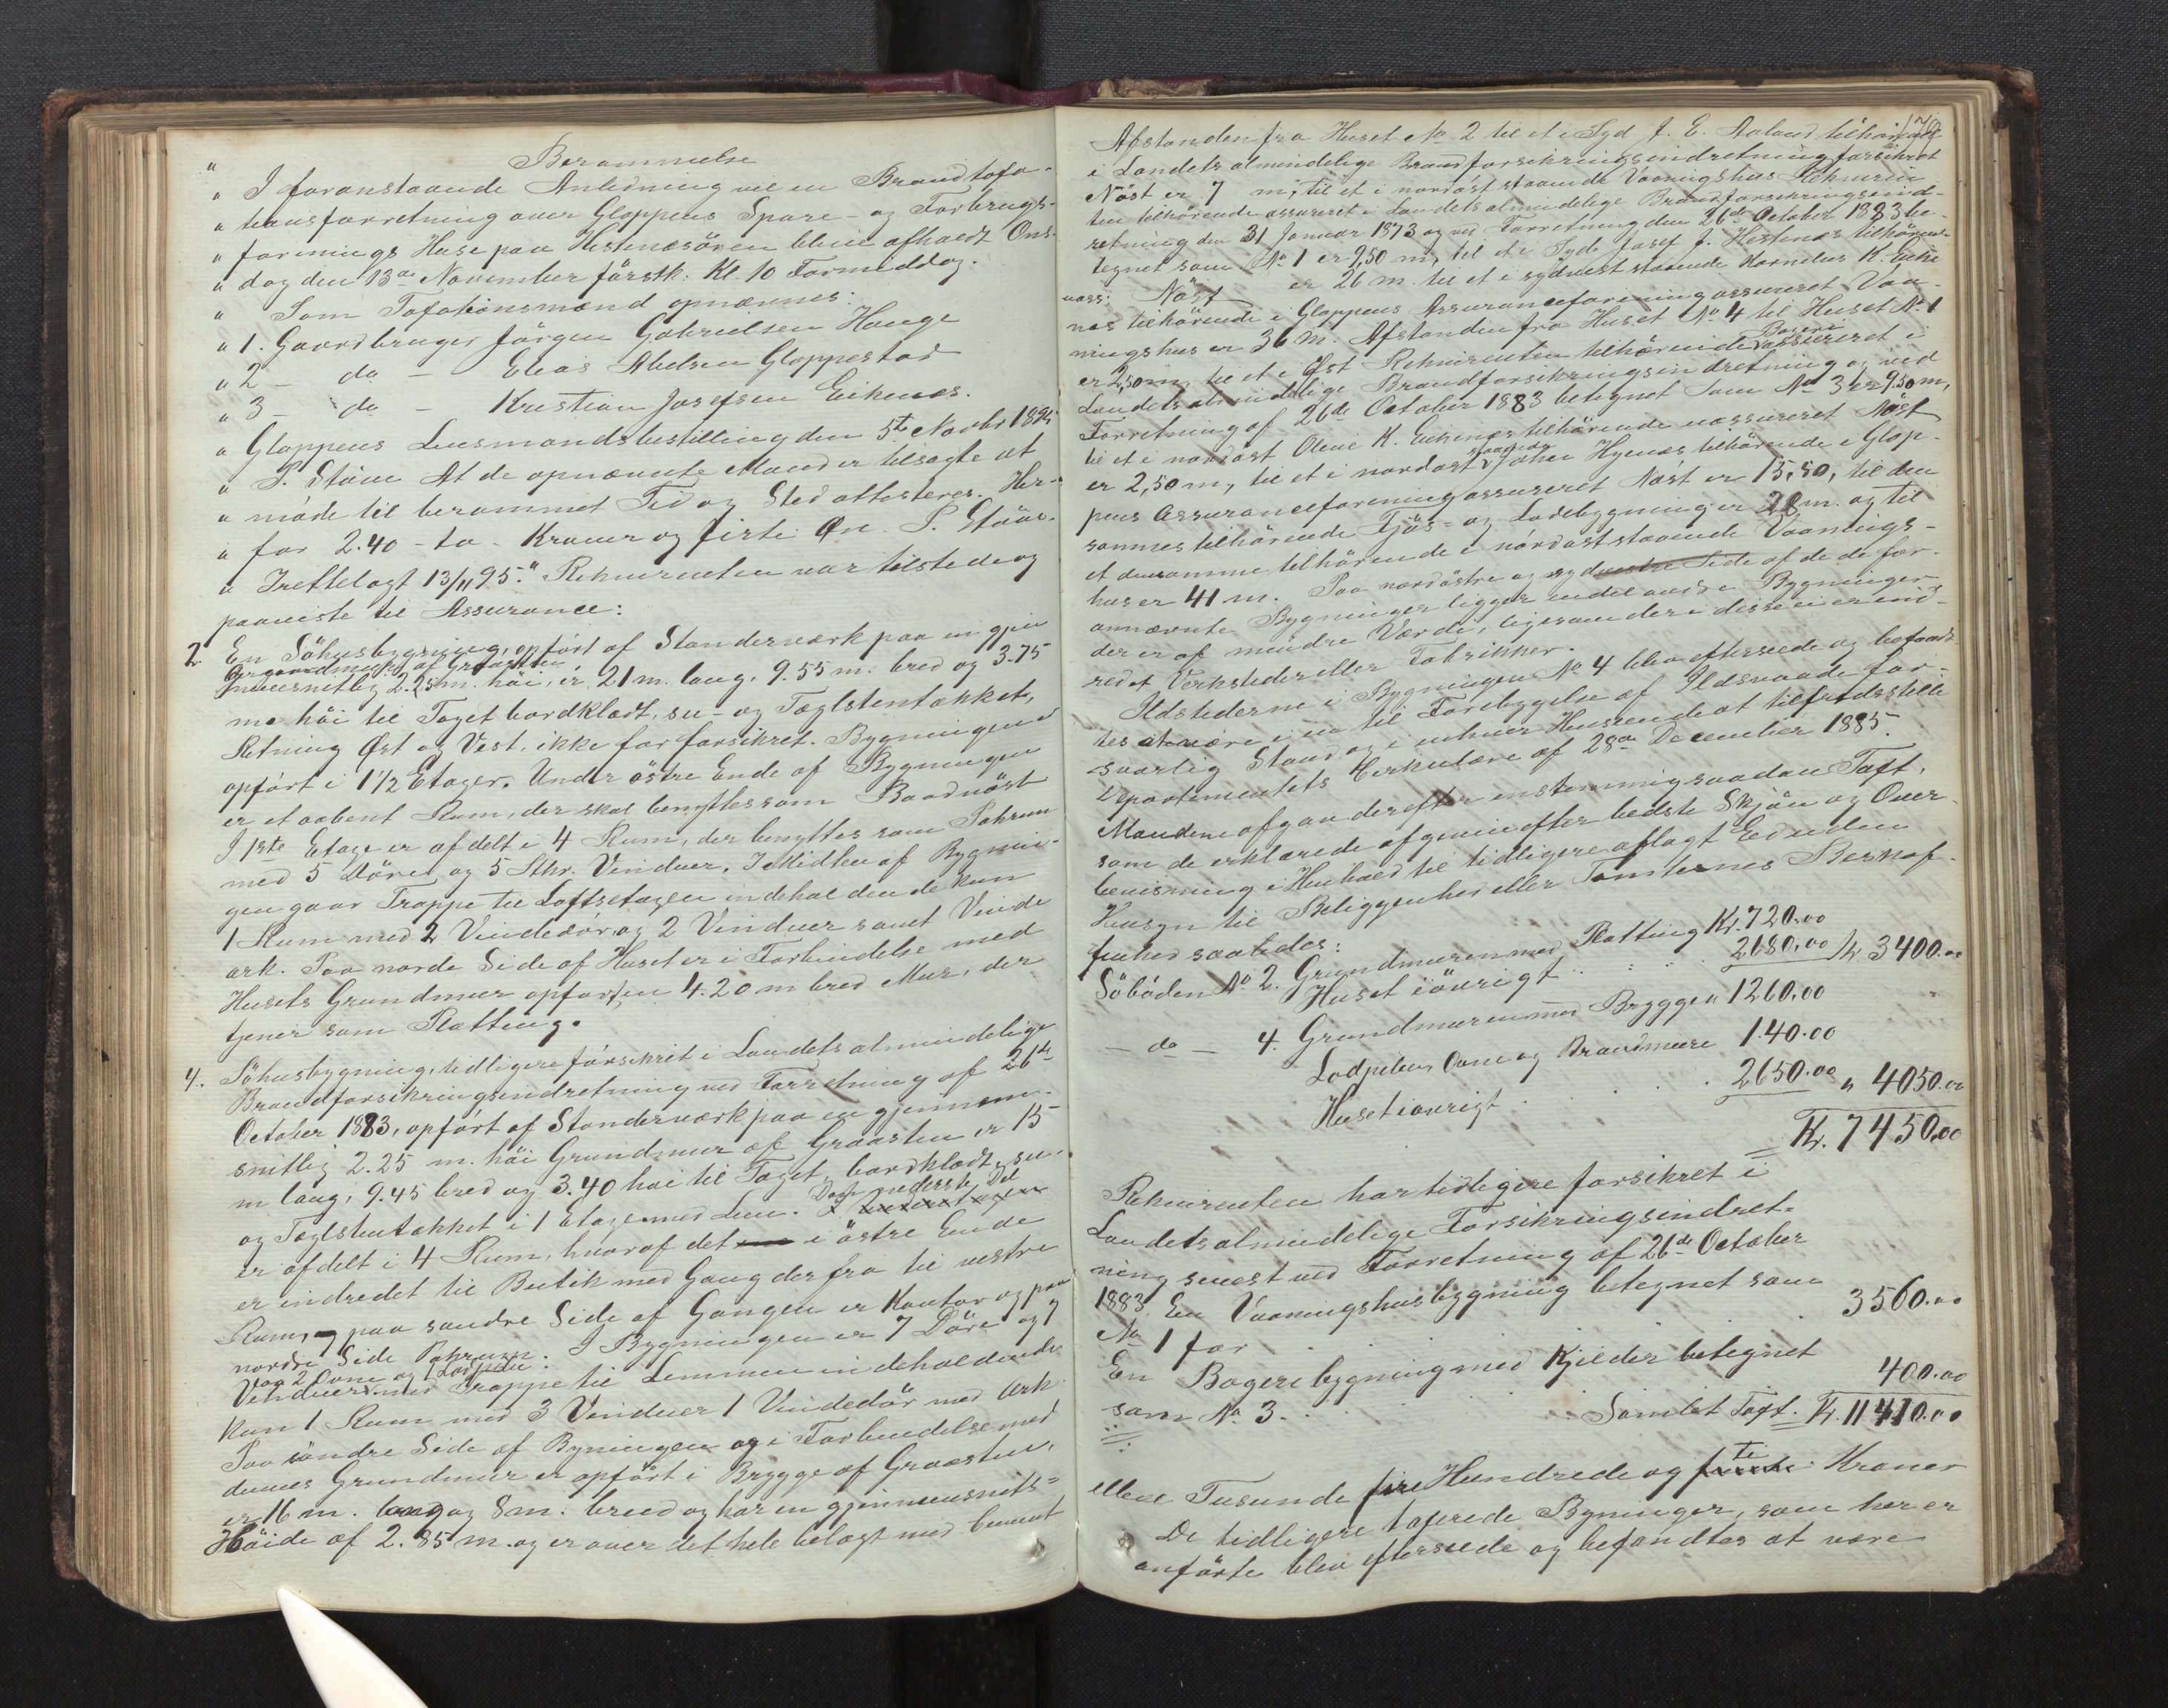 " Berammelse
" I foranstaaende Anledning vil en Brandtaxa-
" tionsforretning over Gloppens Spare- og Forbrugs-
" forenings Huse paa Hestenesören blive afholdt Ons-
" dag den 13de November förstk. Kl. 10 Formiddag.
" Som Taxationsmænd opnævnes:
" 1. Gaardbruger Jörgen Gabrielsen Hauge
" 2 - do - Elias Abelsen Gloppestad
" 3 - do - Kristian Josefsen Eikenes.
" Gloppens Lensmandsbestilling den 5te Novbr 1895
" P. Stöve At de opnævnte Mænd er tilsagte at
" möde til berammet Tid og Sted attesteres. Her-
" for 2.40 - to - Kroner og firti Öre P. Stöve.
" Irettelagt 13/11 95." Rekvirenten var tilstede og
paaviste til Assurance:
2. En Söhusbygning, opfört af Standerværk paa en gjen
nemsnitlig 2.25 m. höi, er 21 m. lang. 9.55 m. bred og 3.75
Grundmur af Graasten
m. höi til Taget bordklædt, su- og Taglstentækket,
Retning Öst og Vest, ikke för forsikret. Bygningen
opfört i 1 1/2 Etager. Under östre Ende af Bygningen
er et aabent Rum, der skal benyttes som Baadnöst
I 1ste Etage er afdelt i 4 Rum, der benyttes som Pakrum
med 5 Döre og 5 Stkr. Vinduer. I Midten af Bygnin-
gen gaar Trappe til Loftsetagen indeholdende kun
1 Rum med 2 Vindedör og 2 Vinduer samt Vinde
ark. Paa nordre Side af Huset er i Forbindelse med
Husets Grundmur opfört en 4.20 m bred Mur, der
tjener som Platting.
4. Söhusbygning, tidligere forsikret i Landets almindelige
Brandforsikringsindretning ved Forretning af 26de
October 1883, opfört af Standerværk paa en gjennem-
snitlig 2.25 m. höi Grundmur af Graasten er 15
m lang, 9.45 bred og 3.40 höi til Taget, bordklædt, su-
og Taglstentækket i 1 Etage med Lem. Dens nederste Del
er afdelt i 4 Rum, hvoraf det i östre Ende
er indredet til Butik med Gang derfra til vestre
Rum, og paa söndre Side af Gangen er Kontor og paa
nordre Side Pakrum. I Bygningen er 7 Döre og 7
Vinduer og 2 Ovne og 1 Lodpibe med Trappe til Lemmen indeholdende
kun 1 Rum med 3 Vinduer 1 Vindedör med Ark
Paa söndre Side af Bygningen og i Forbindelse med
dennes Grundmur er opfört i Brygge af Graasten,
er 16 m. lang og 8 m. bred og har en gjennemsnits-
Höide af 2.85 m. og er over det hele belagt med Cement
Afstanden fra Huset No 2 til et i Syd J. E. Aaland tilhörende
i Landets almindelige Brandforsikringsindretning forsikret
Nöst er 7 m, til et i nordöst staaende Vaaningshus Rekviren
ten tilhörende assureret i Landets almindelige Brandforsikringsind-
retning den 31 Januar 1873 og ved Forretning den 26de October 1883 be-
tegnet som No 1 er 9,50 m, til et i Syd Josef J. Hestenes tilhörende
uass. Nöst er 26 m. til et i sydvest staaende Kornelius K. Eike
nes tilhörende i Gloppens Assuranceforening assureret Vaa-
ningshus er 36 m. Afstanden fra Huset No 4 til Huset No 1
er 2,50 m, til et i Öst Rekvirenten tilhörende Bageri assureret i
Landets almindelige Brandforsikringsindretning og ved
Forretning af 26de October 1883 betegnet som No 3 er 9.50 m,
til et i nordöst Olene K. Eikenes tilhörende uassureret Nöst
er 2,50 m, til et i nordöst staaende Johan Hynæs tilhörende i Glop-
pens Assuranceforening assureret Nöst er 15,50, til den
sammes tilhörende Fjös- og Ladebygning er 28 m. og til
et densamme tilhörende i nordöst staaende Vaanings-
hus er 41 m. Paa nordöstre og sydvestre Side af de de for-
annævnte Bygninger ligger endel andre Bygninger
der er af mindre Værdi, ligesom der i disse ei er ind-
redet Verksteder eller Fabrikker.
Ildstederne i Bygningen No 4 blev efterseede og befand-
tes at være i en til Forebyggelse af Ildsvaade for-
svarlig Stand og i enhver Henseende at tilfredsstille
Departementets Cirkulære af 28de December 1885.
Mændene afgav derefter enstemmig saadan Taxt,
som de erklærede afgiven efter bedste Skjön og Over-
bevisning i Henhold til tidligere aflagt Ed uden
Hensyn til Beliggenhed eller Tomternes Beskaf-
fenhed saaledes:
Söboden No 2. Grundmuren med Platting Kr. 720.00
Huset iövrigt . . . . 2680.00 Kr 3400.00
- do - 4. Grundmuren med Bryggen 1260.00
Lodpiben Ovne og Brandmure 140.00
Huset iövrigt . . . . 2650.00 " 4050.00
Kr. 7450.00
Rekvirenten har tidligere forsikret i
Landets almindelige Forsikringsindret-
ning senest ved Forretning af 26de October
1883 En Vaaningshusbygning betegnet som
No 1 for . . . 3560.00
En Bageribygning med Kjelder betegnet
som No 3. . . . 400.00
Samlet Taxt. Kr. 11410.00
elleve Tusunde fire Hundrede og ti Kroner
De tidligere taxerede Bygninger, som her er
anförte blev efterseede og befandtes at være